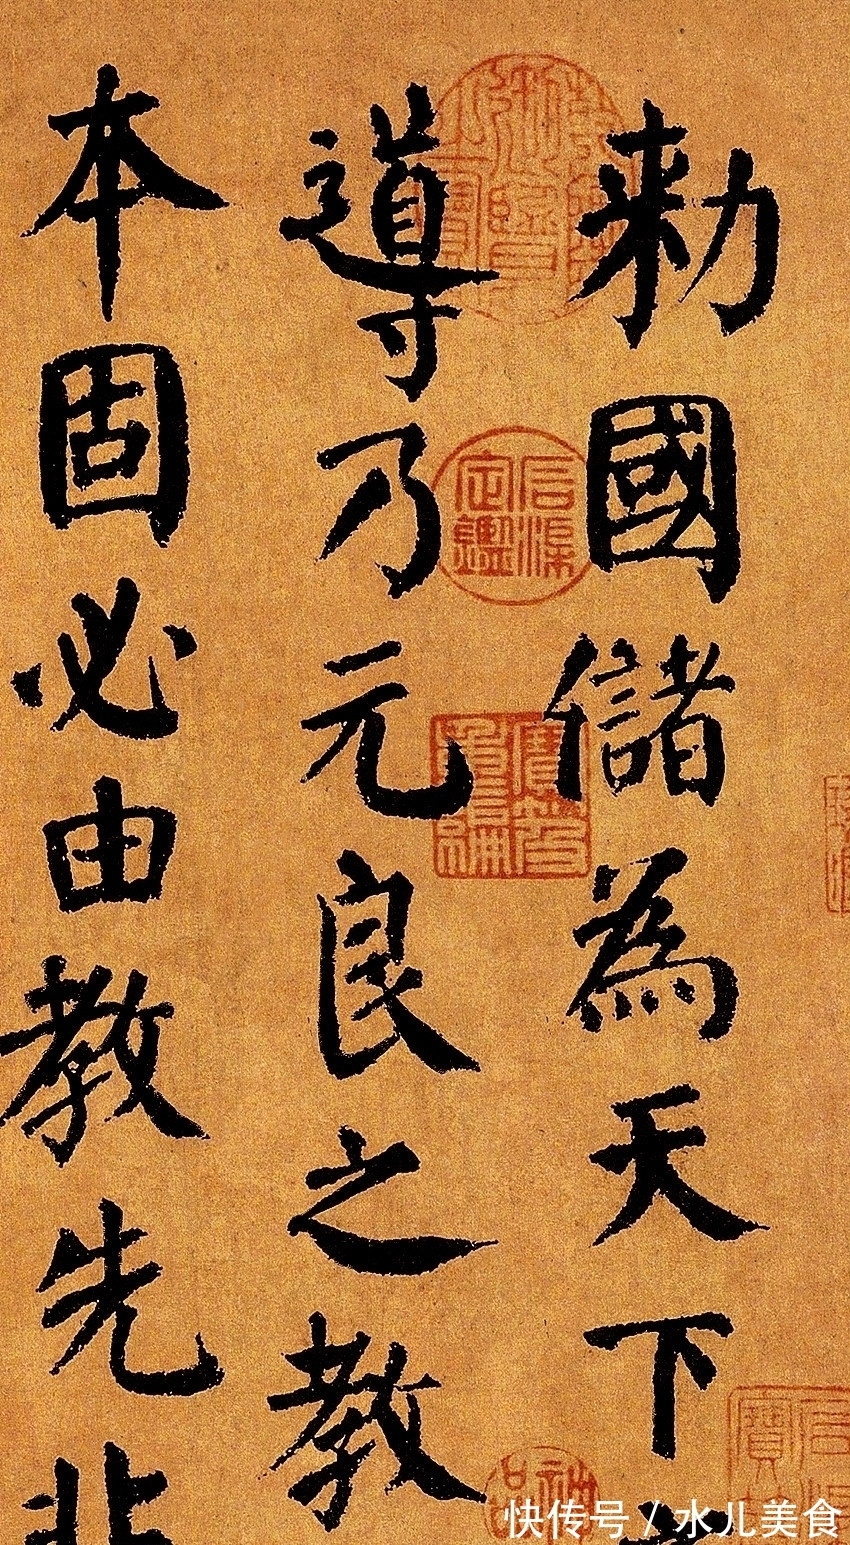 勑國儲為天下
導乃元良之教
本固必由教先非
快传号 / 水儿美食